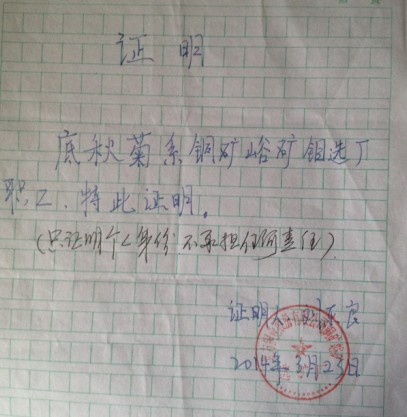 证明
底秋菊系铜矿峪矿钼选厂
职工,特此证明。
(只证明个人身份 不承担任何责任)
证明人
2014年3月23日